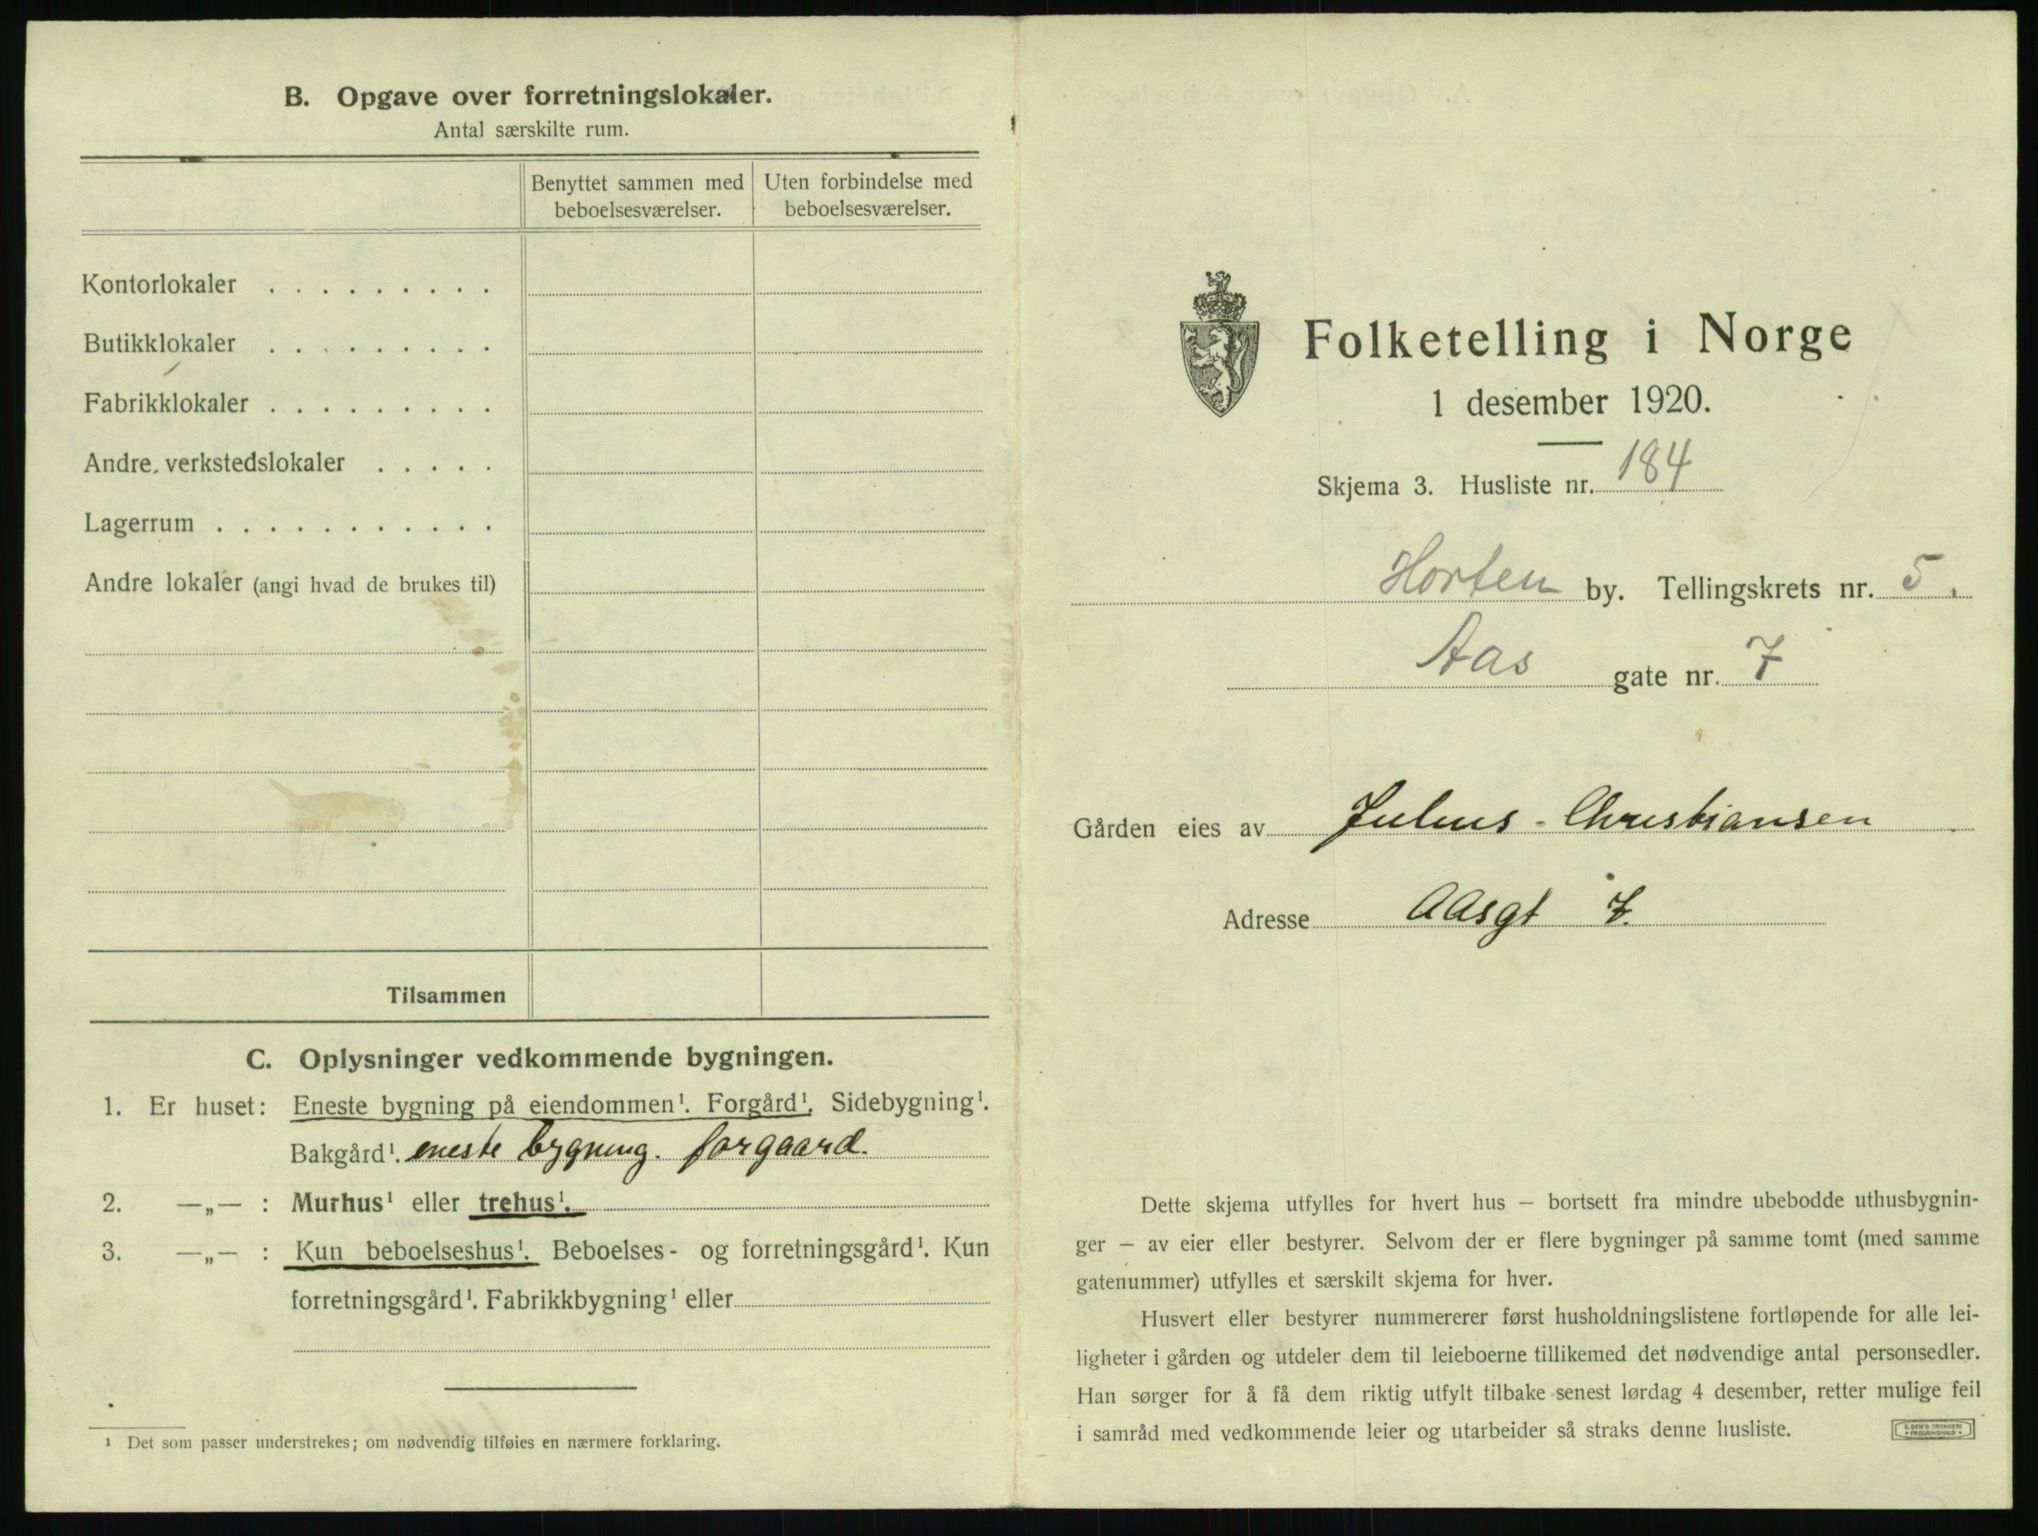 B. Opgave over forretningslokaler.
Antal særskilte rum.
Benyttet sammen med beboelsesværelser.
Uten forbindelse med beboelsesværelser.
Kontorlokaler . . . . . . . . .
Butikklokaler . . . . . . . . .
Fabrikklokaler . . . . . . . . .
Andre verkstedslokaler . . . . .
Lagerrum . . . . . . . . . . .
Andre lokaler (angi hvad de brukes til)
Tilsammen
C. Oplysninger vedkommende bygningen.
1. Er huset: Eneste bygning på eiendommen¹. Forgård¹. Sidebygning¹.
Bakgård¹. eneste bygning. forgaard.
2. —„— : Murhus¹ eller trehus¹.
3. —„— : Kun beboelseshus¹. Beboelses- og forretningsgård¹. Kun
forretningsgård¹. Fabrikkbygning¹ eller
¹ Det som passer understrekes; om nødvendig tilføies en nærmere forklaring.
Folketelling i Norge
1 desember 1920.
Skjema 3. Husliste nr. 184
Horten by. Tellingskrets nr. 5.
Aas gate nr. 7
Gården eies av Julius Christiansen
Adresse AAsgt 7.
Dette skjema utfylles for hvert hus – bortsett fra mindre ubebodde uthusbygnin-
ger – av eier eller bestyrer. Selvom der er flere bygninger på samme tomt (med samme
gatenummer) utfylles et særskilt skjema for hver.
Husvert eller bestyrer nummererer først husholdningslistene fortløpende for alle lei-
ligheter i gården og utdeler dem til leieboerne tillikemed det nødvendige antal personsedler.
Han sørger for å få dem riktig utfylt tilbake senest lørdag 4 desember, retter mulige feil
i samråd med vedkommende leier og utarbeider så straks denne husliste.